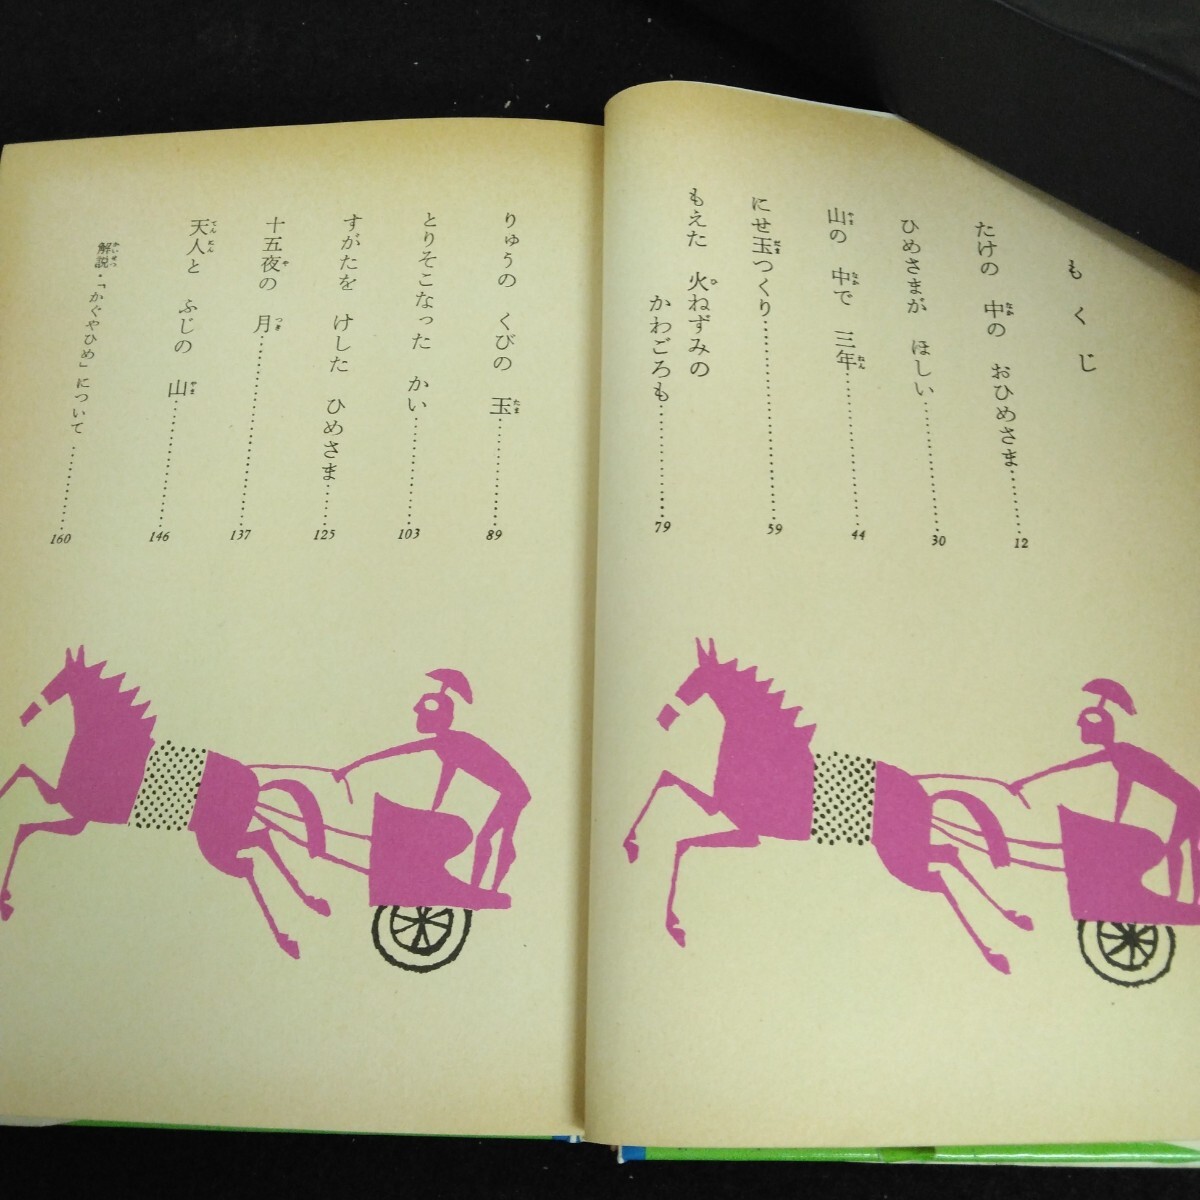 もくじ
たけの 中(なか)の おひめさま……………12
ひめさまが ほしい……………30
山(やま)の 中(なか)で 三年(ねん)……………44
にせ玉(だま)つくり……………59
もえた 火(ひ)ねずみの
かわごろも……………79
りゅうの くびの 玉(たま)……………89
とりそこなった かい……………103
すがたを けした ひめさま……………125
十五夜(や)の 月(つき)……………137
天人(てんにん)と ふじの 山(やま)……………146
解説(かいせつ)・「かぐやひめ」について……………160